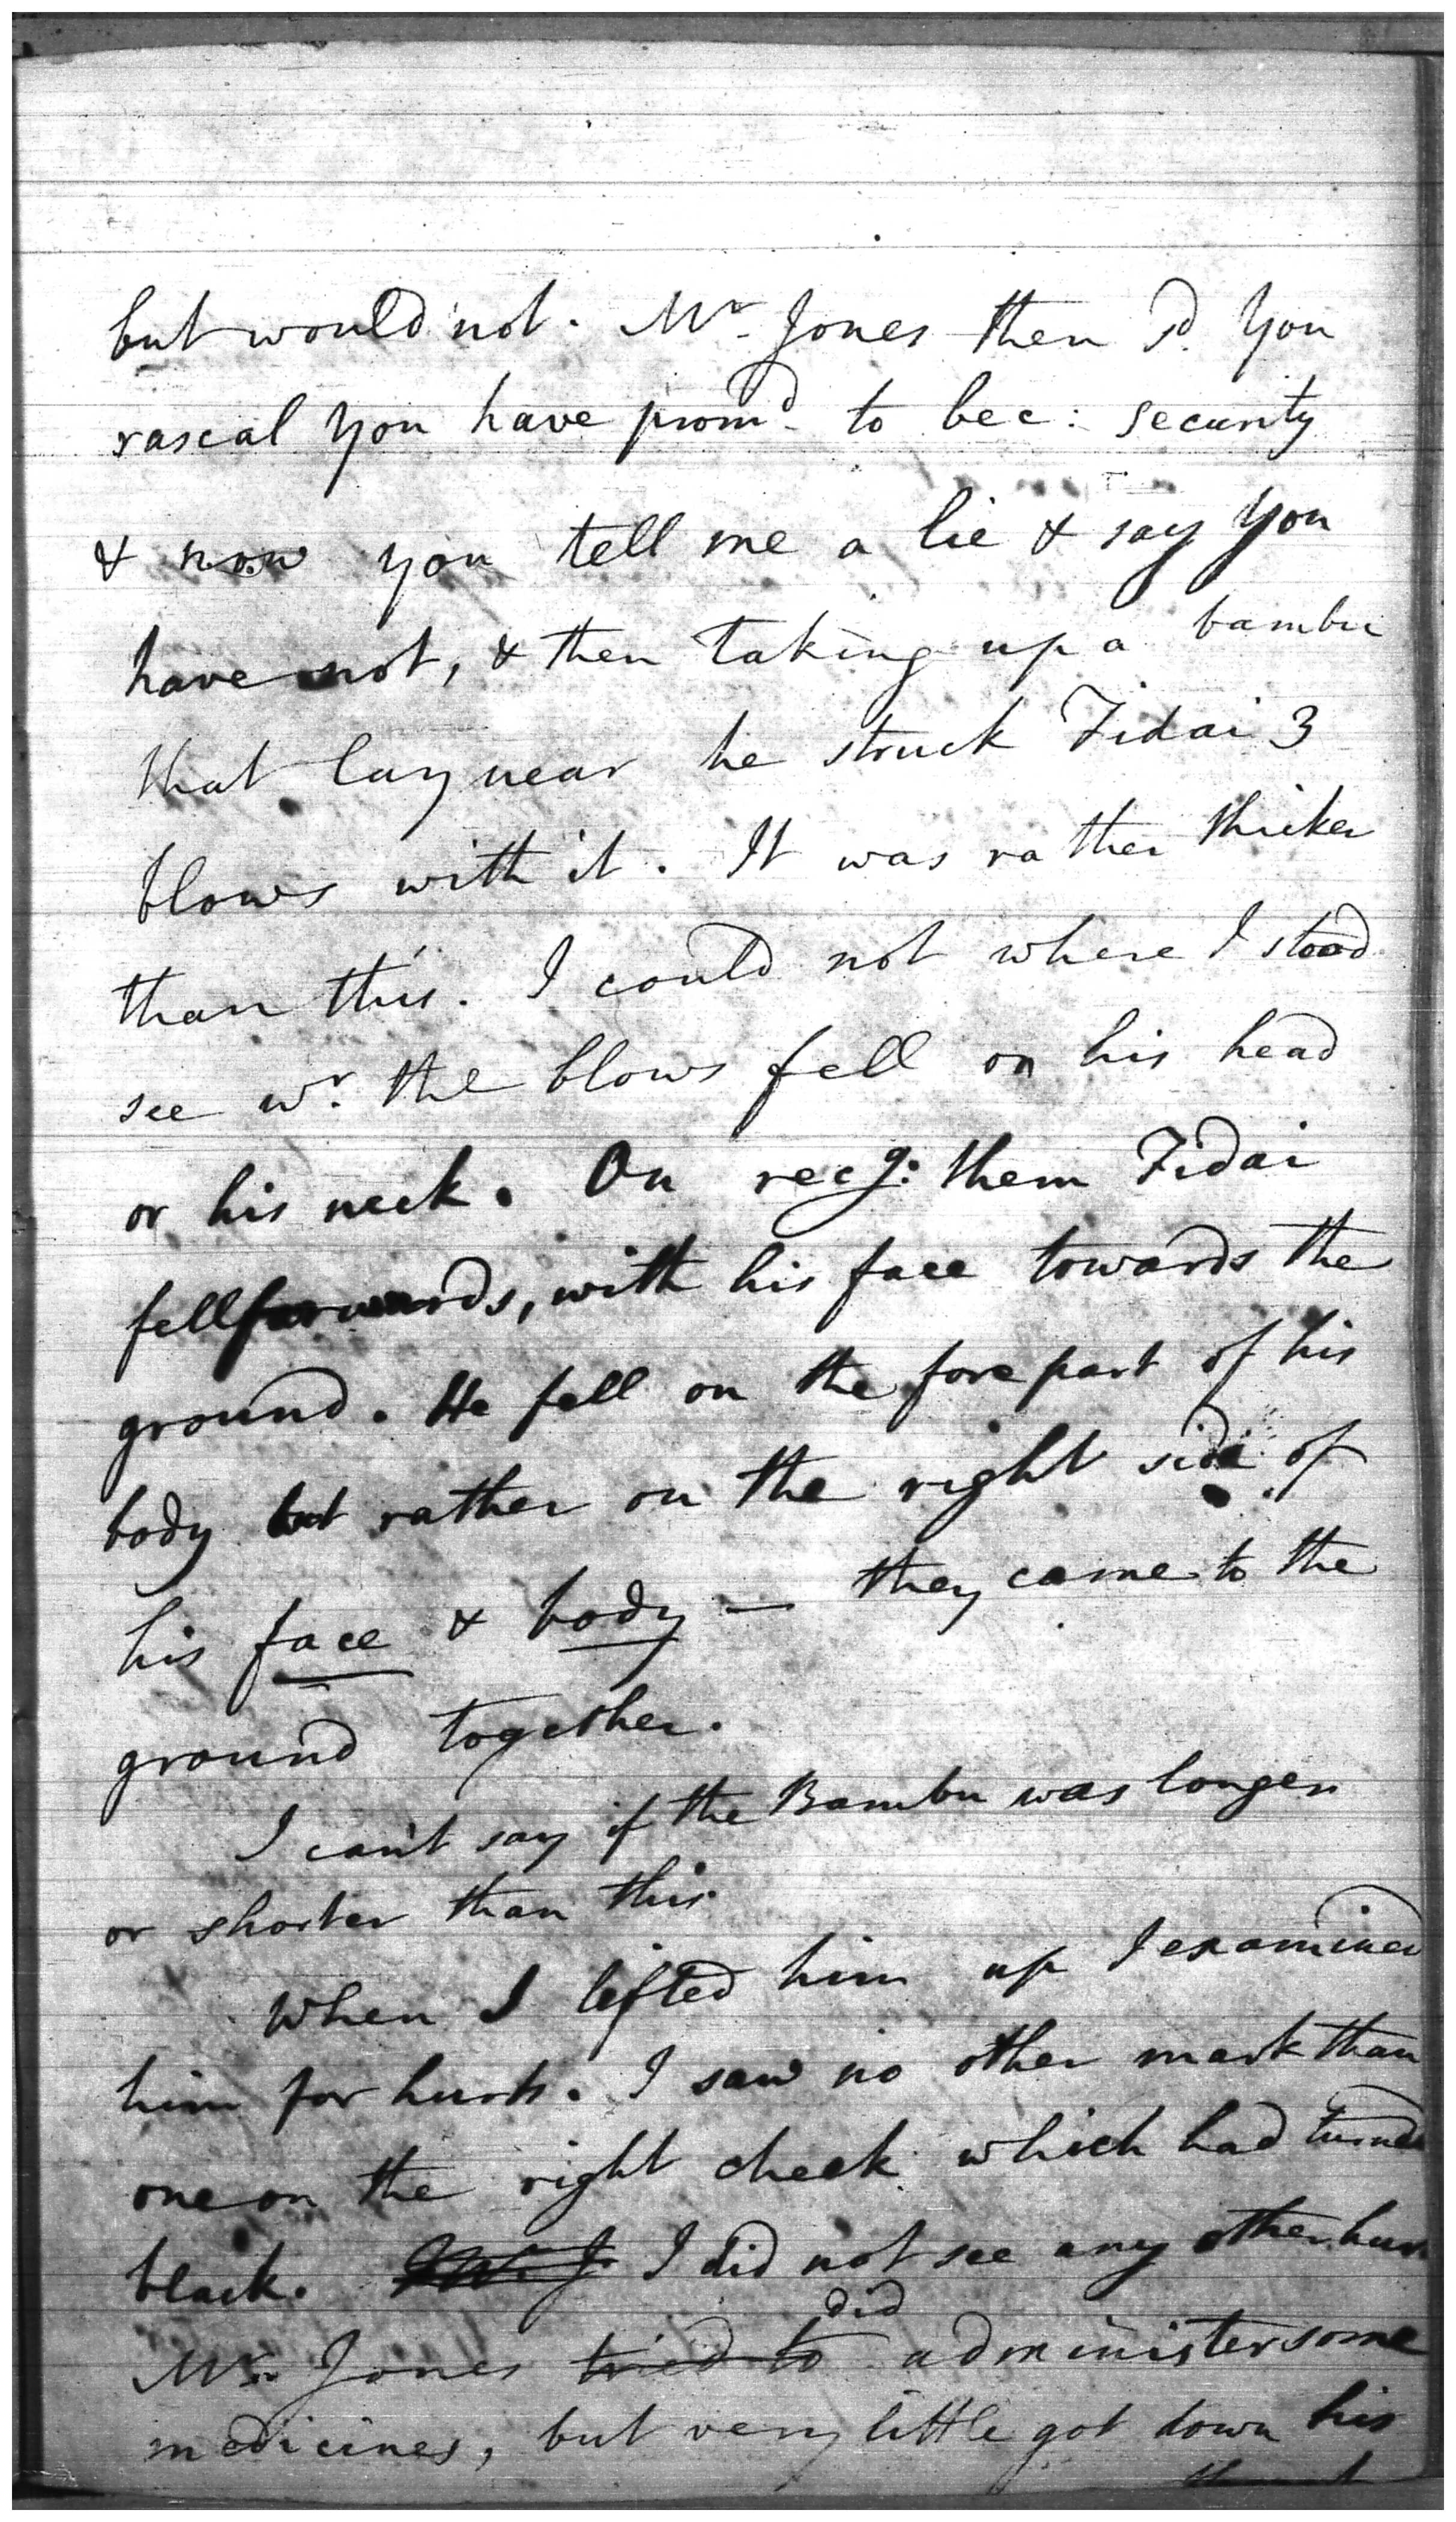 but would not. Mr. Jones then sd. You
rascal you have promd. to bec: security
& now you tell me a lie & say you
have not, & then taking up a bambu
that lay near he struck Fidai 3
blows with it. It was rather thicker
than this. I could not where I stood
see wr. the blows fell on his head
or his neck. On recg: them Fidai
fell forwards, with his face towards the
ground. He fell on the fore part of his
body but rather on the right side of
his face & body — they came to the
ground together.
I can't say if the Bambu was longer
or shorter than this.
When I lifted him up I examined
him for hurts. I saw no other mark than
one on the right cheek which had turned
black. I did not see any other hurt
did
Mr. Jones tried to administer some
medicines, but very little got down his